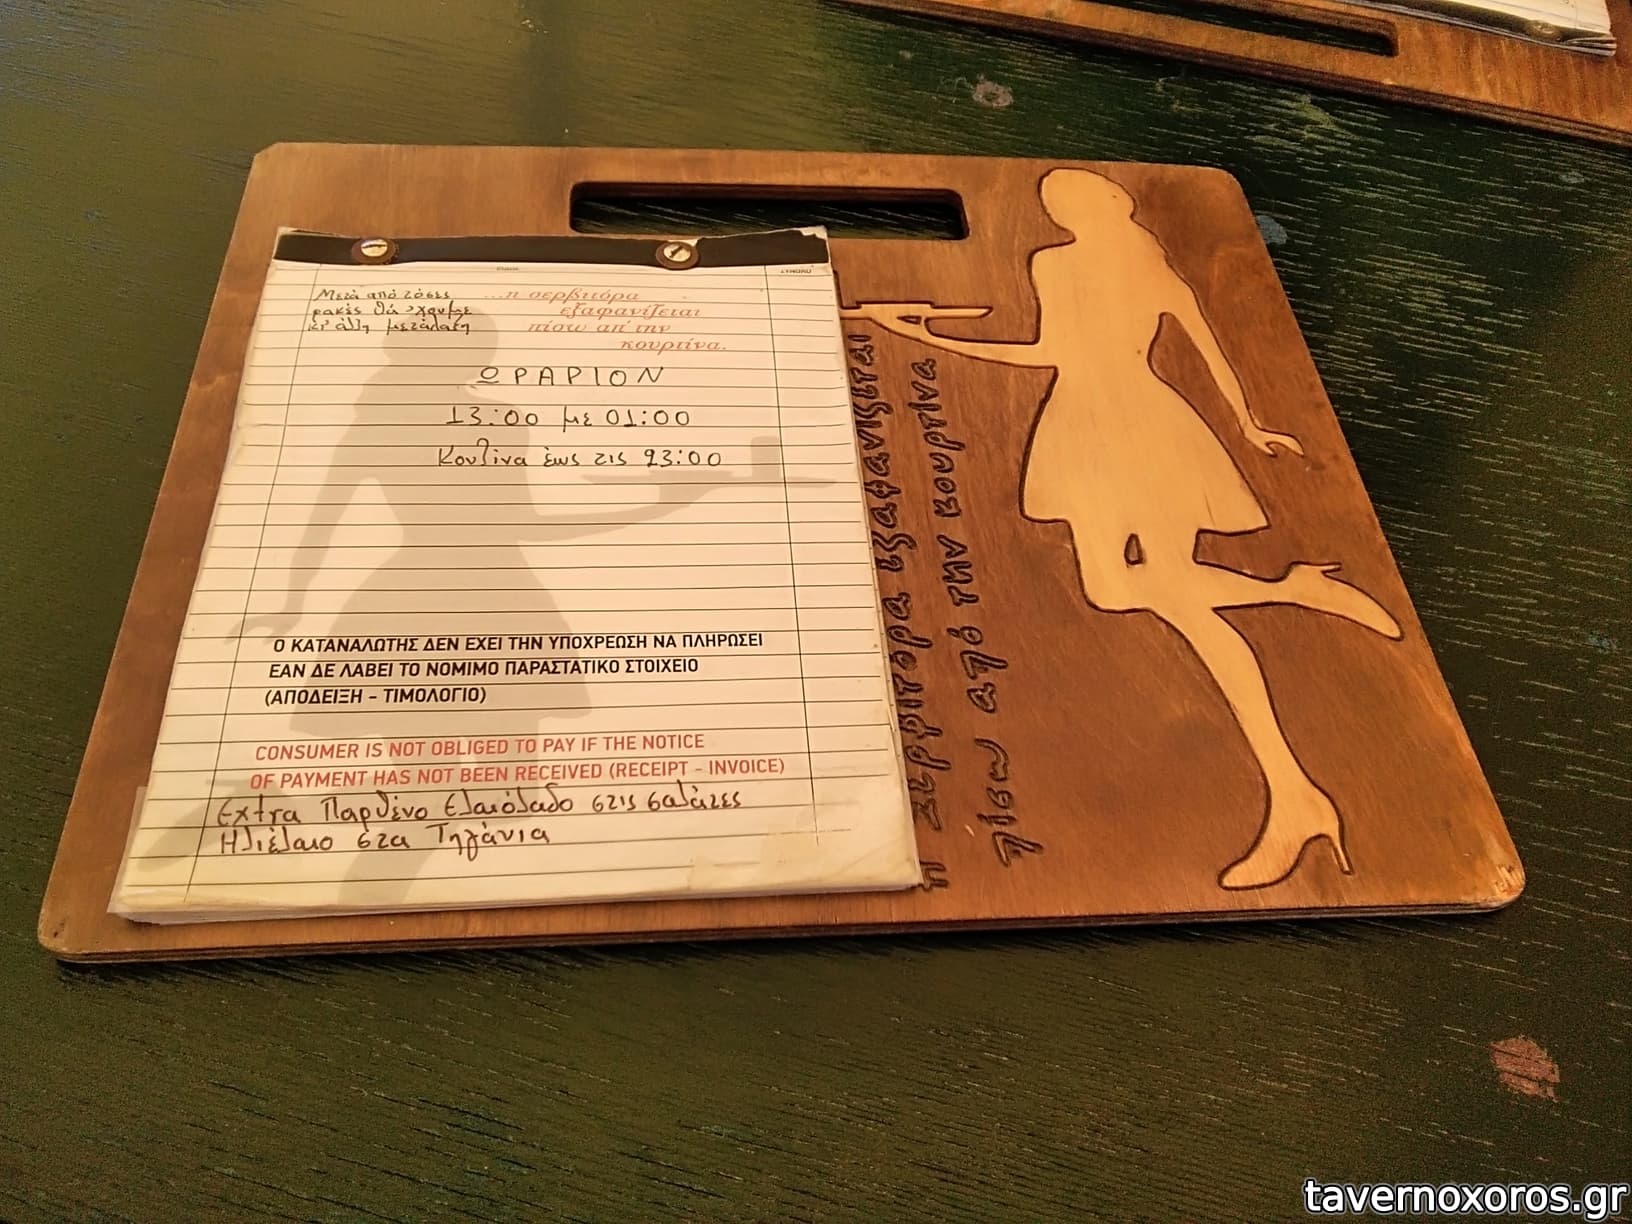 ΕΙΔΟΣ
ΣΥΝΟΛΟ
Μετά από τόσες
ρακές θα 'χουμε
κι' άλλη μετάλαξη
...η σερβιτόρα
εξαφανίζεται
πίσω απ' την
κουρτίνα.
ΩΡΑΡΙΟΝ
13:00 με 01:00
Κουζίνα έως τις 23:00
Ο ΚΑΤΑΝΑΛΩΤΗΣ ΔΕΝ ΕΧΕΙ ΤΗΝ ΥΠΟΧΡΕΩΣΗ ΝΑ ΠΛΗΡΩΣΕΙ
ΕΑΝ ΔΕ ΛΑΒΕΙ ΤΟ ΝΟΜΙΜΟ ΠΑΡΑΣΤΑΤΙΚΟ ΣΤΟΙΧΕΙΟ
(ΑΠΟΔΕΙΞΗ - ΤΙΜΟΛΟΓΙΟ)
CONSUMER IS NOT OBLIGED TO PAY IF THE NOTICE
OF PAYMENT HAS NOT BEEN RECEIVED (RECEIPT - INVOICE)
Extra Παρθένο Ελαιόλαδο στις σαλάτες
Ηλιέλαιο στα Τηγάνια
η σερβιτόρα εξαφανίζεται
πίσω από την κουρτίνα
tavernoxoros.gr